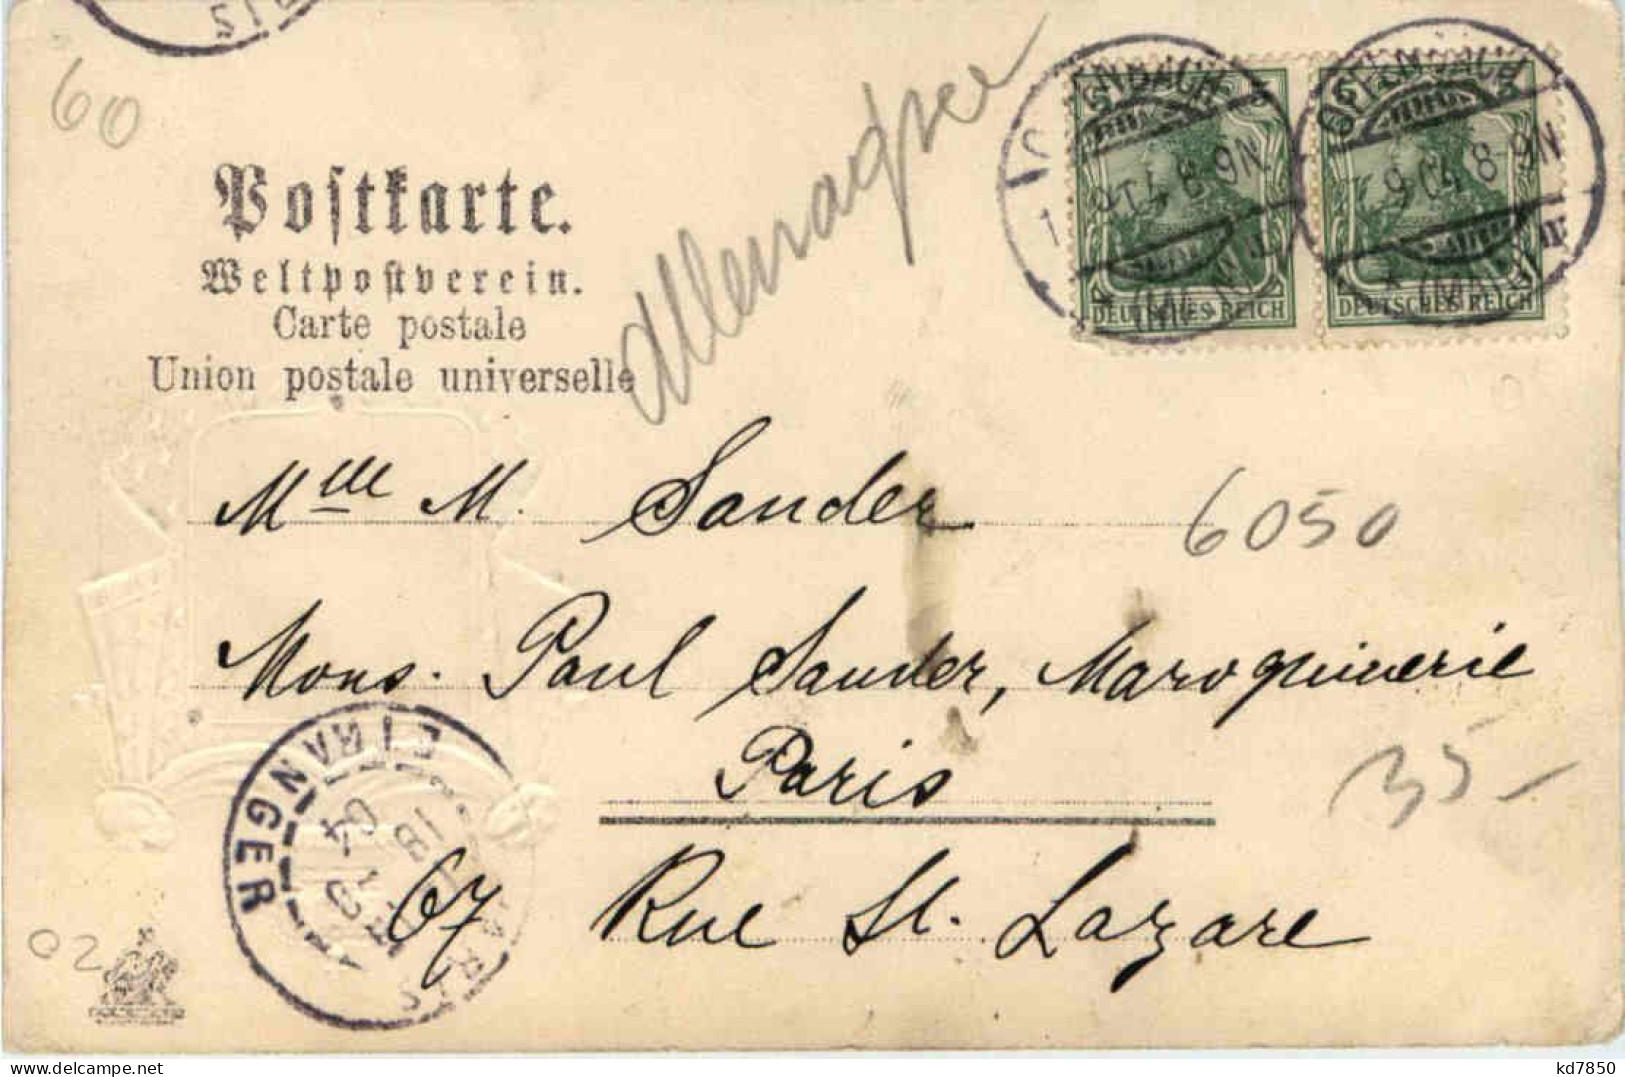 60
Postkarte.
Weltpostverein.
Carte postale
Union postale universelle
Allemagne
OFFENBACH
9 04 8-9N
DEUTSCHES REICH
DEUTSCHES REICH
Mlle M. Sander
6050
Mons. Paul Sander, Maroquinerie
Paris
35-
67 Rue St. Lazare
ETRANGER
PARIS
02
kd7850